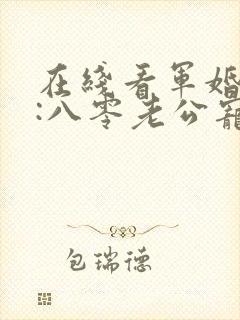 在綫看軍婚
:八零老公寵
包瑞德